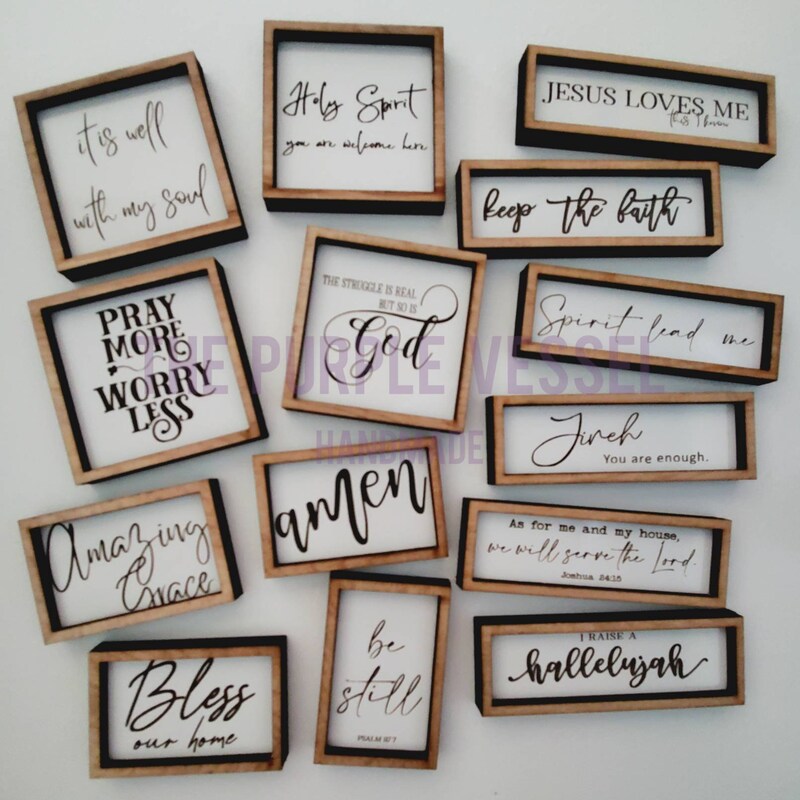 it is well
with my soul
Holy Spirit
you are welcome here
JESUS LOVES ME
this I know
keep the faith
PRAY
MORE
WORRY
LESS
THE STRUGGLE IS REAL
BUT SO IS
God
Spirit lead me
THE PURPLE VESSEL
HANDMADE
Jireh
You are enough.
Amazing
Grace
amen
As for me and my house,
we will serve the Lord.
Joshua 24:15
Bless
our home
be
still
PSALM
I RAISE A
hallelujah